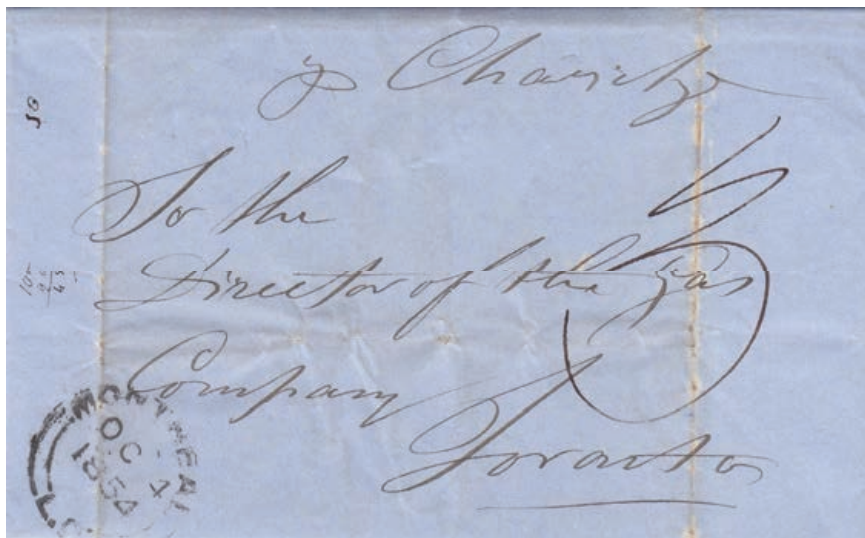 ⅌ Charity
To the
Director of the gas
Company
Toronto
MONTREAL
OC 4
1854
L.C.